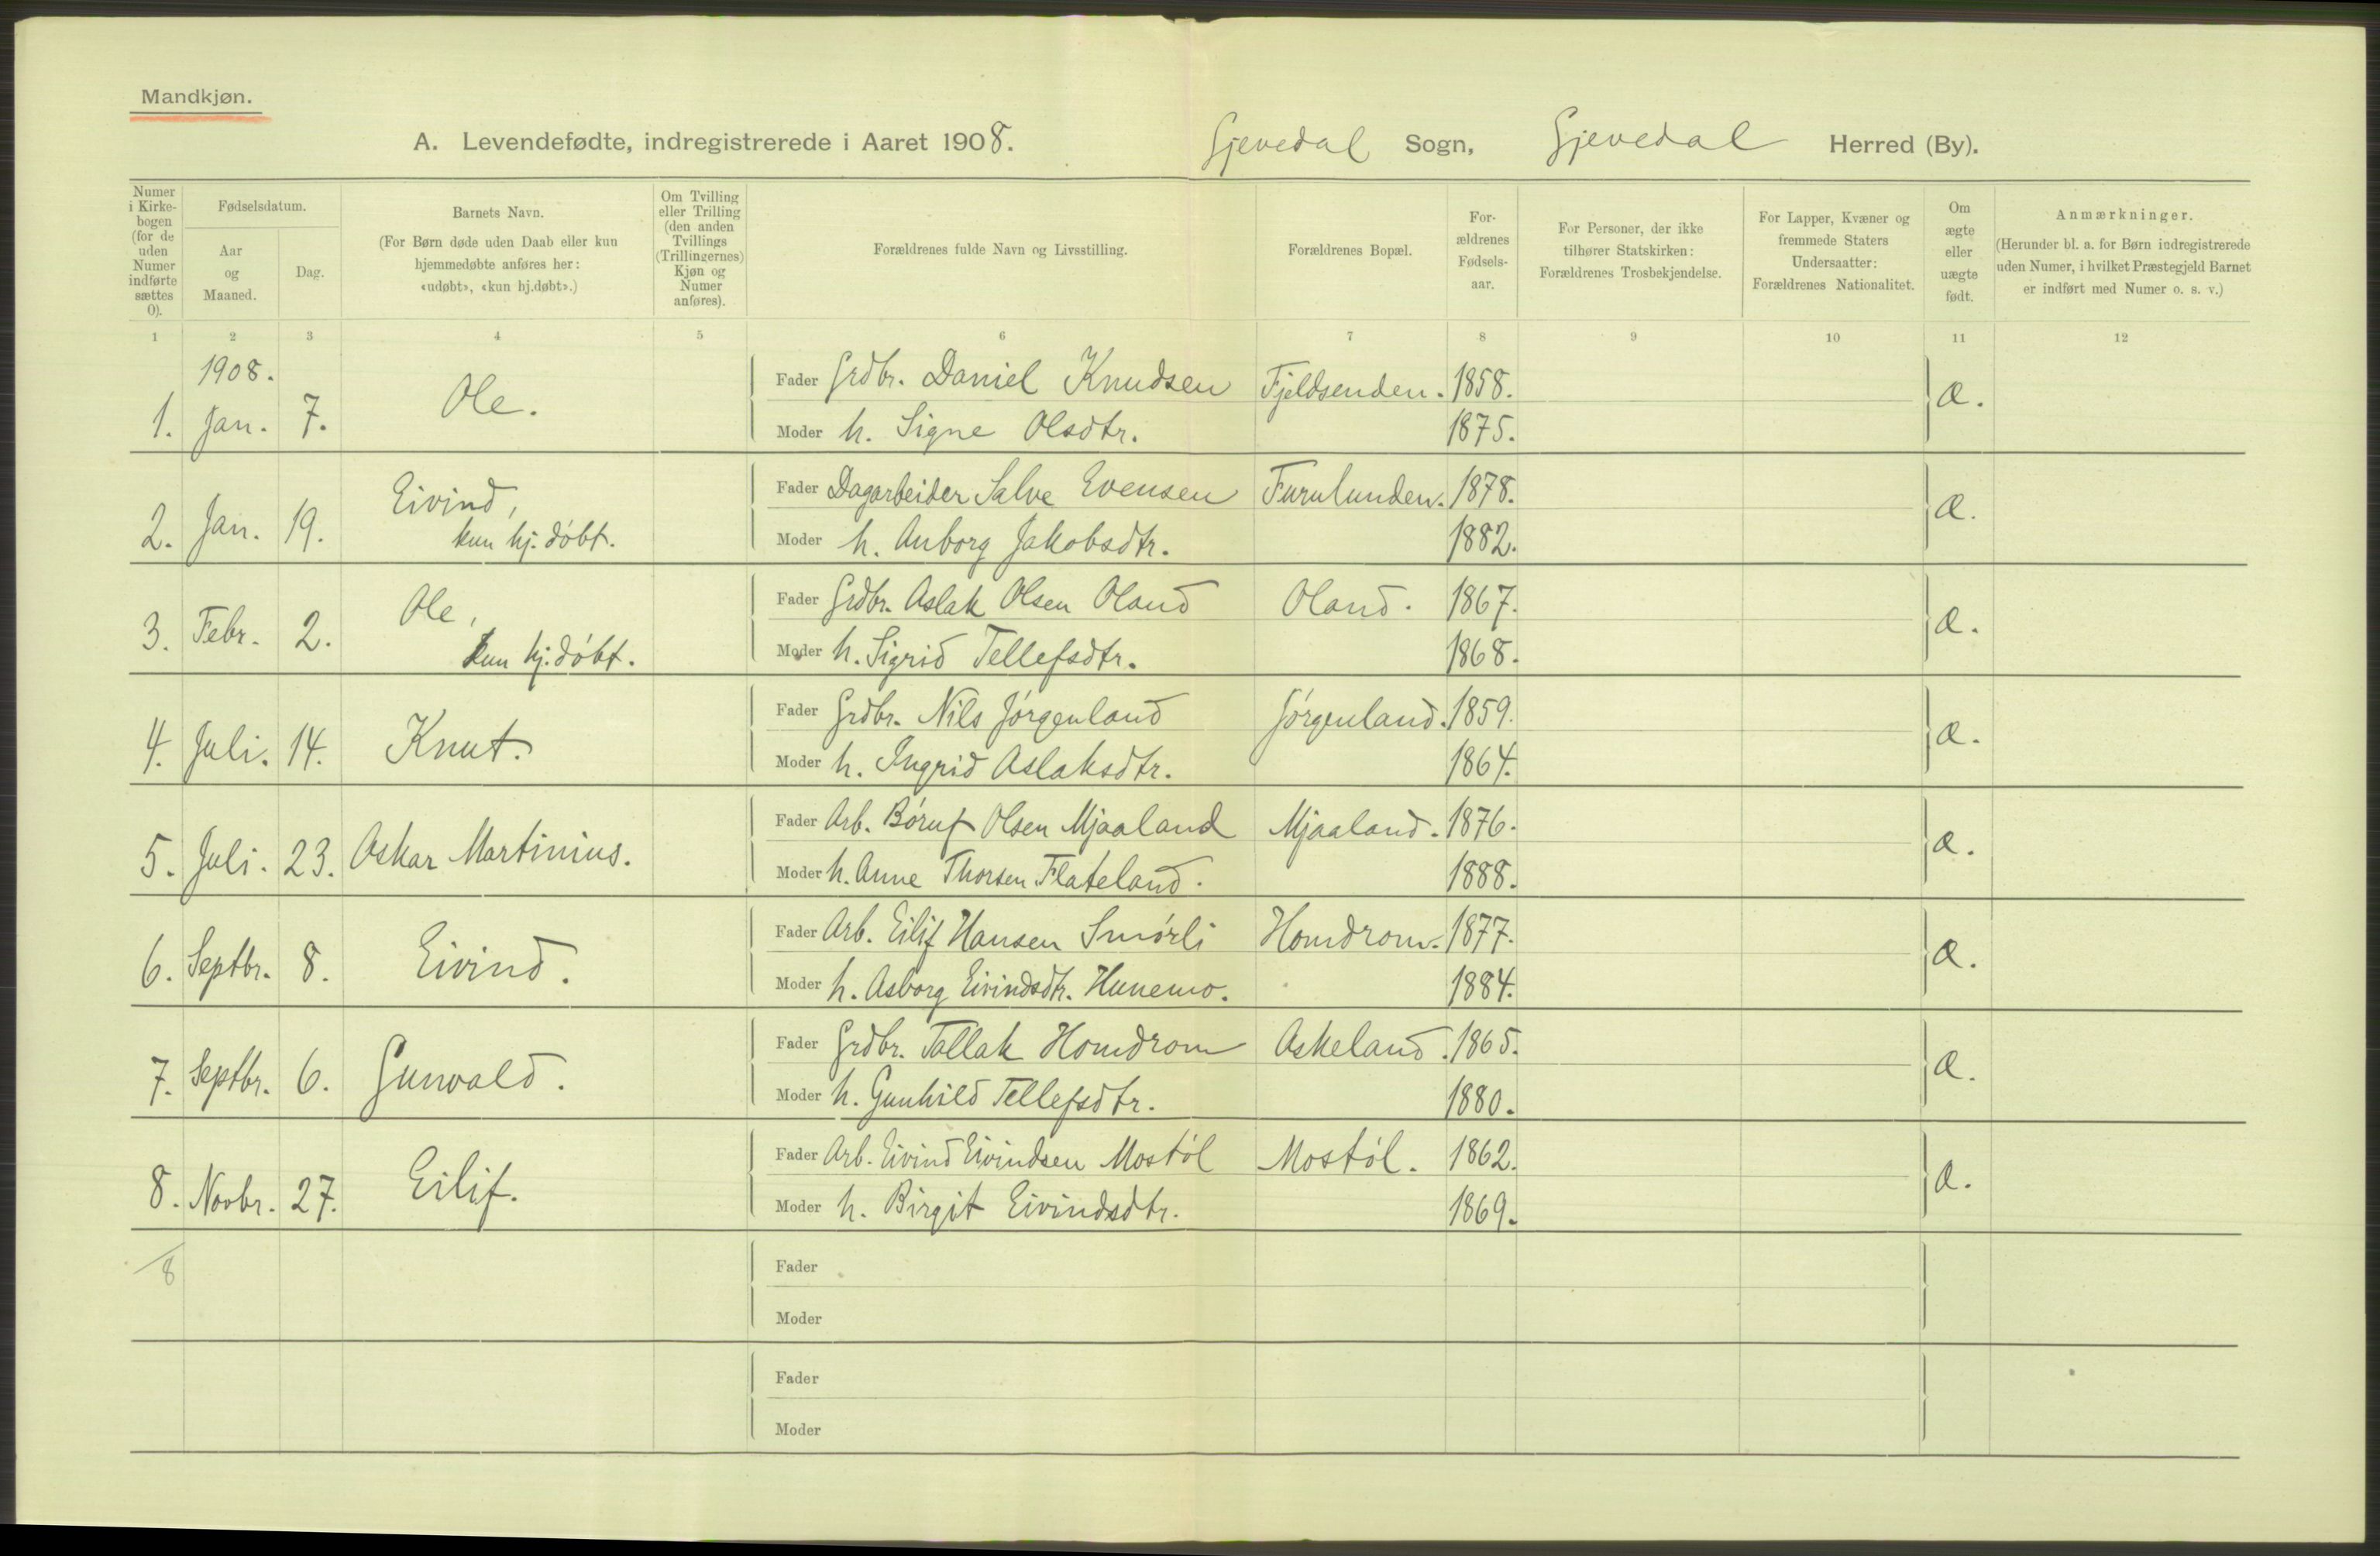 Mandkjøn.
A. Levendefødte, indregistrerede i Aaret 1908. Gjevedal Sogn, Gjevedal Herred (By).
Numer i Kirkebogen (for de uden Numer indførte sættes 0).
Fødselsdatum.
Aar og Maaned.
Dag.
Barnets Navn.
(For Børn døde uden Daab eller kun hjemmedøbte anføres her: «udøbt», «kun hj.døbt».)
Om Tvilling eller Trilling (den anden Tvillings (Trillingernes) Kjøn og Numer anføres).
Forældrenes fulde Navn og Livsstilling.
Forældrenes Bopæl.
Forældrenes Fødselsaar.
For Personer, der ikke tilhører Statskirken: Forældrenes Trosbekjendelse.
For Lapper, Kvæner og fremmede Staters Undersaatter: Forældrenes Nationalitet.
Om ægte eller uægte født.
Anmærkninger.
(Herunder bl. a. for Børn indregistrerede uden Numer, i hvilket Præstegjeld Barnet er indført med Numer o. s. v.)
1 2 3 4 5 6 7 8 9 10 11 12
1908.
1. Jan. 7. Ole. Fader Grdbr. Daniel Knudsen Fjeldsenden. 1858. Æ.
Moder h. Signe Olsdtr. 1875.
2. Jan. 19. Eivind, kun hj. døbt. Fader Dagarbeider Salve Evensen Furulunden. 1878. Æ.
Moder h. Anborg Jakobsdtr. 1882.
3. Febr. 2. Ole, kun hj. døbt. Fader Grdbr. Aslak Olsen Oland Oland. 1867. Æ.
Moder h. Sigrid Tellefsdtr. 1868.
4. Juli. 14. Knut. Fader Grdbr. Nils Jørgenland Jørgenland. 1859. Æ.
Moder h. Ingrid Aslaksdtr. 1864.
5. Juli. 23. Askar Martinius. Fader Arb. Børuf Olsen Mjaaland Mjaaland. 1876. Æ.
Moder h. Anne Thorsen Flateland. 1888.
6. Septbr. 8. Eivind. Fader Arb. Eilif Hansen Smørli Homdrom. 1877. Æ.
Moder h. Asborg Eivindsdtr. Hunemo. 1884.
7. Septbr. 6. Gunvald. Fader Grdbr. Tallak Homdrom Askeland. 1865. Æ.
Moder h. Gunhild Tellefsdtr. 1880.
8. Novbr. 27. Eilif. Fader Arb. Eivind Eivindsen Mostøl Mostøl. 1862. Æ.
Moder h. Birgit Eivindsdtr. 1869.
8
Fader
Moder
Fader
Moder